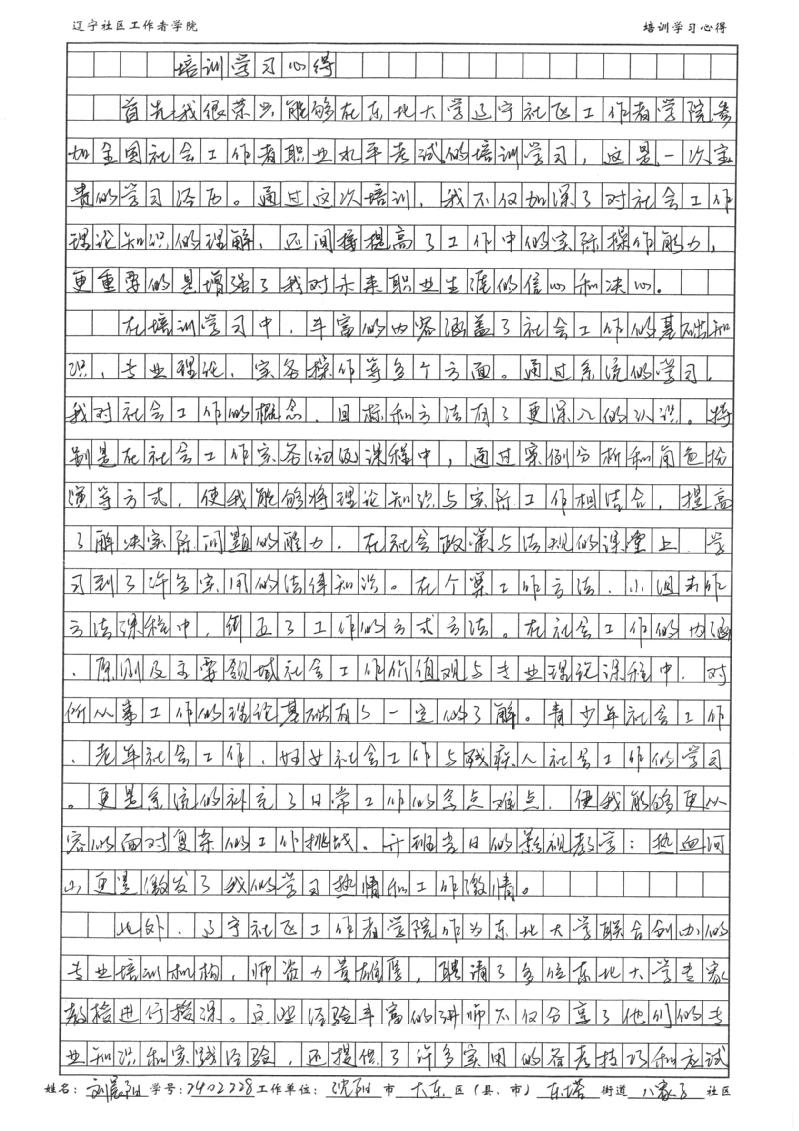 辽宁社区工作者学院 培训学习心得
培训学习心得
首先,我很荣兴能够在东北大学辽宁社区工作者学院参
加全国社会工作者职业水平考试的培训学习，这是一次宝
贵的学习经历。通过这次培训，我不仅加深了对社会工作
理论知识的理解，还间接提高了工作中的实际操作能力，
更重要的是增强了我对未来职业生涯的信心和决心。
在培训学习中，丰富的内容涵盖了社会工作的基础知
识、专业理论、实务操作等多个方面。通过系统的学习，
我对社会工作的概念、目标和方法有了更深入的认识。特
别是在社会工作实务(初级)课程中，通过案例分析和角色扮
演等方式，使我能够将理论知识与实际工作相结合，提高
了解决实际问题的能力，在社会政策与法规的课堂上，学
习到了许多实用的法律知识。在个案工作方法、小组工作
方法课程中，纠正了工作的方式方法。在社会工作的内涵
、原则及主要领域社会工作价值观与专业理论课程中，对
所从事工作的理论基础有了一定的了解。青少年社会工作
、老年社会工作、妇女社会工作与残疾人社会工作的学习
。更是系统的补充了日常工作的重点难点，使我能够更从
容的面对复杂的工作挑战。开班当日的影视教学：热血河
山更是激发了我的学习热情和工作激情。
此外，辽宁社区工作者学院作为东北大学联合创办的
专业培训机构，师资力量雄厚，聘请了多位东北大学专家
教授进行授课。这些经验丰富的讲师不仅分享了他们的专
业知识和实践经验，还提供了许多实用的备考技巧和应试
姓名：刘晨阳 学号：7402228 工作单位：沈阳 市 大东 区（县、市） 东塔 街道 八家子 社区